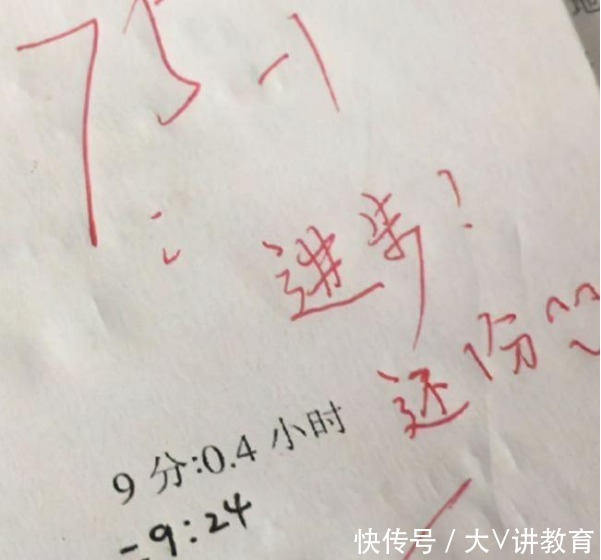 75-1
进步!
还1份
9 分:0.4 小时
=9:24
快传号 / 大V讲教育